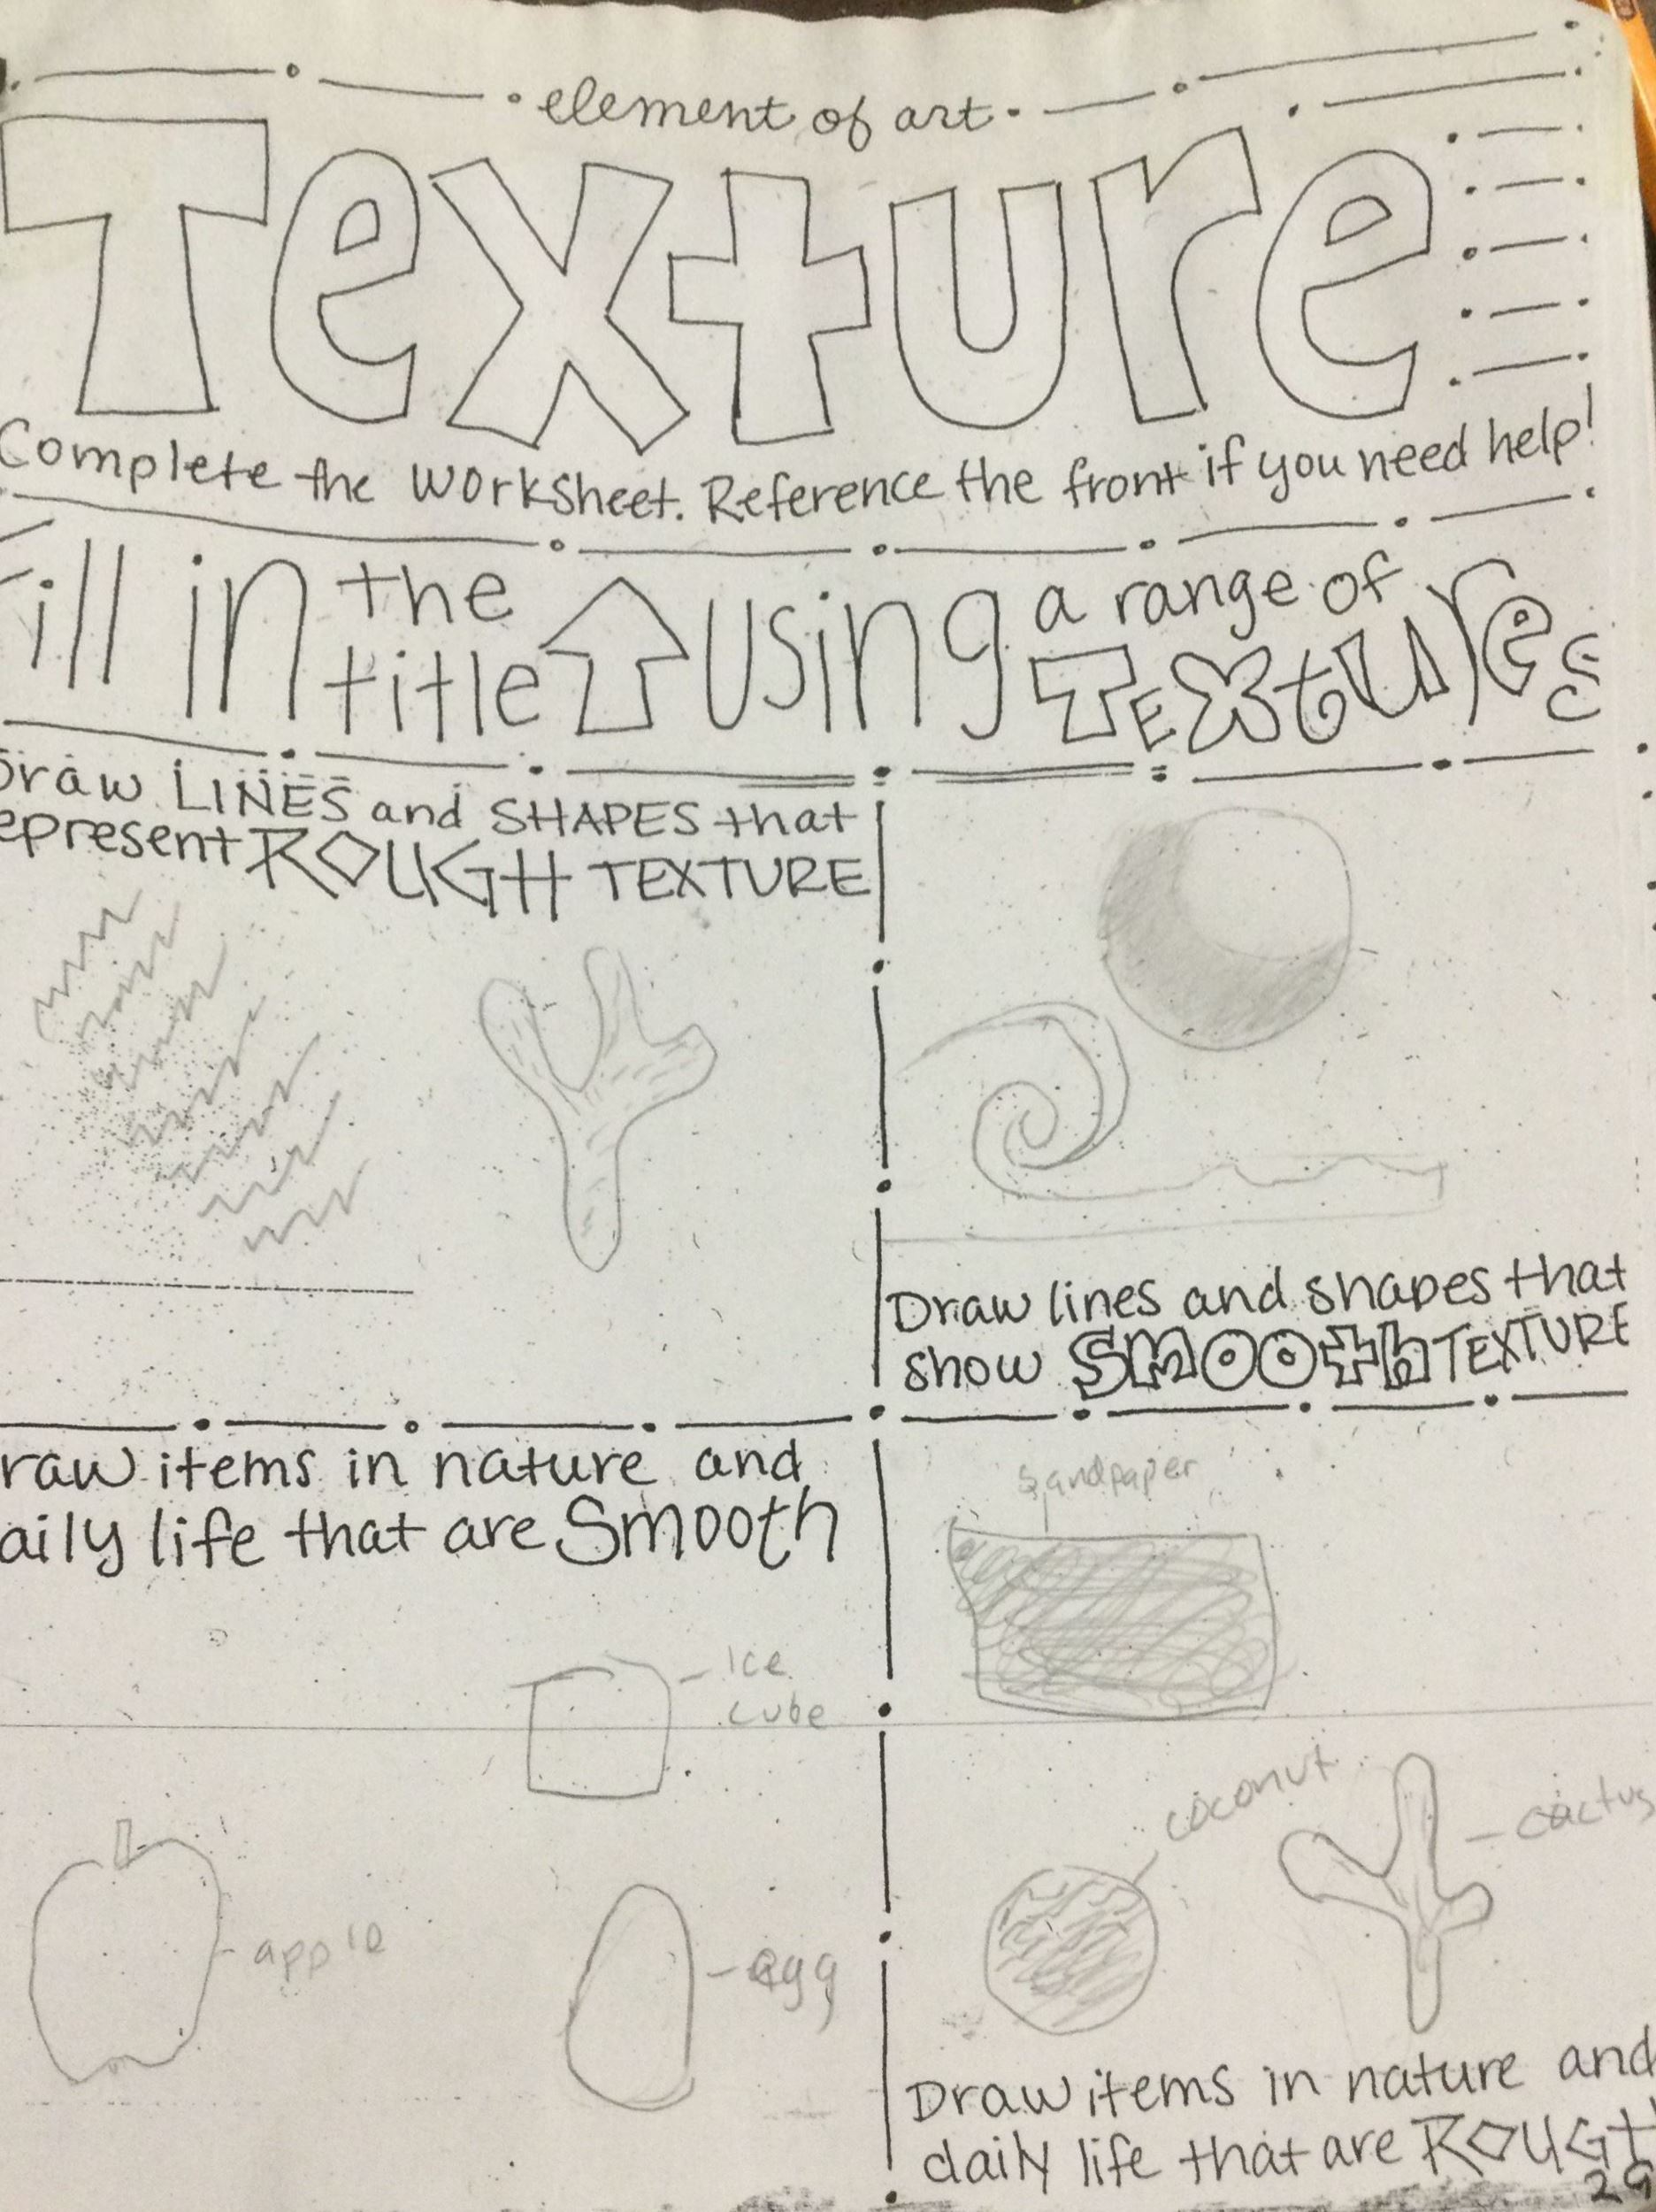 element of art
Texture
Complete the worksheet. Reference the front if you need help!
Fill in the title using a range of TExtures
Draw LINES and SHAPES that
represent ROUGH TEXTURE
Draw lines and shapes that
show Smooth TEXTURE
raw items in nature and
aily life that are Smooth
Ice
cube
apple
egg
Sandpaper
coconut
cactus
Draw items in nature and
daily life that are ROUGH
29